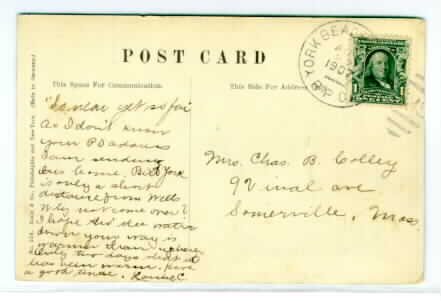 POST CARD
This Space For Communication.
This Side For Address
YORK BEACH
190
R.P.O.
1
"So near yet so far"
As I don't know
your P.O. address
I am sending
this home. But York
is only a short
distance from Wells
Why not come over?
I hope the water
down your way is
warmer than where
Only two days that it
has been warm. Have
a good time.
Mrs. Chas. B. Colley
92 inal ave
Somerville, Mass
& Co., Philadelphia and New York. (Made in Germany)